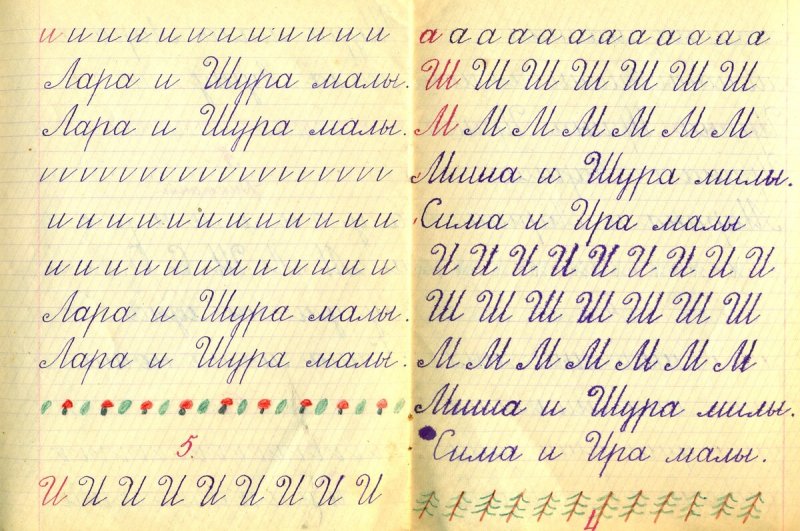 и и и и и и и и и и и и
Лара и Шура малы.
Лара и Шура малы.
и и и и и и и и и и и и
и и и и и и и и и и и и
Лара и Шура малы.
Лара и Шура малы.
5.
И И И И И И И И И
а а а а а а а а а а а а
Ш Ш Ш Ш Ш Ш Ш
М М М М М М М
Миша и Шура милы.
Сима и Ира малы
И И И И И И И И И
Ш Ш Ш Ш Ш Ш Ш
М М М М М М М
Миша и Шура милы.
Сима и Ира малы.
4